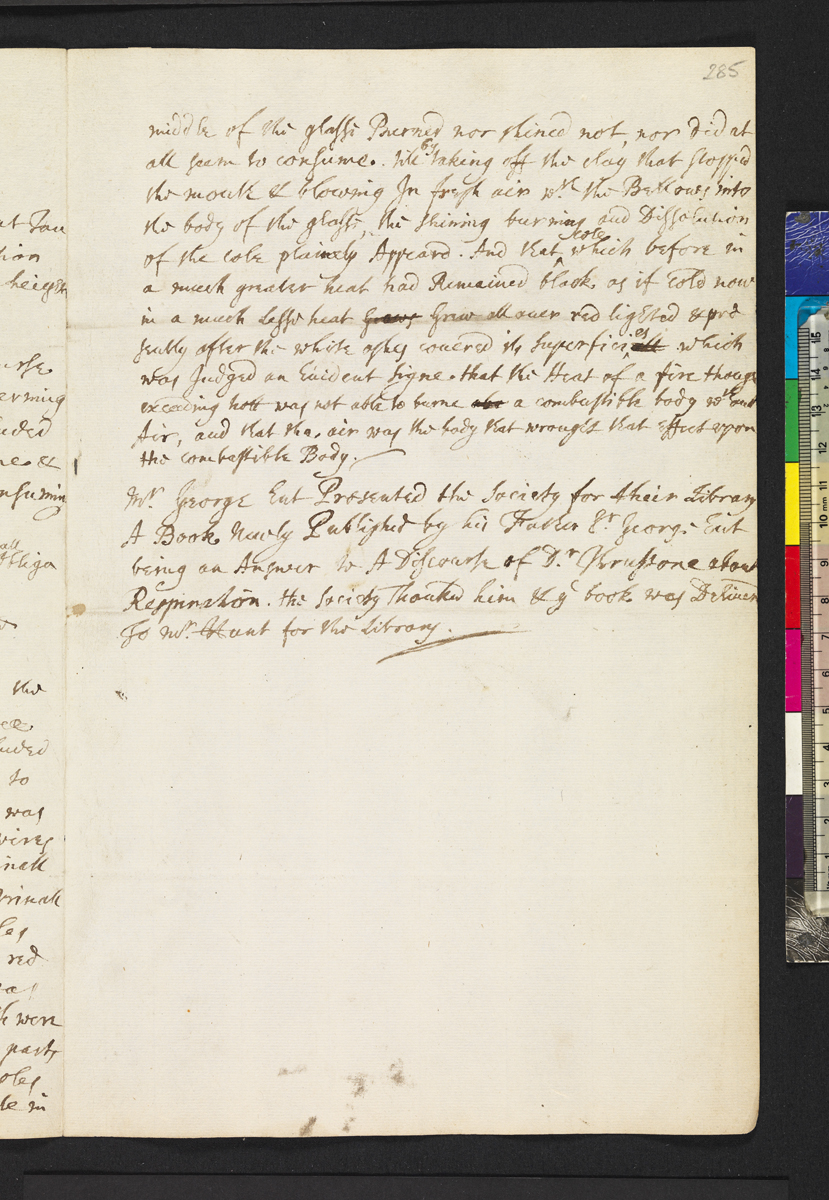 285
middle of the glasse Burned nor shined not, nor did at
all seem to consume. till by taking off the clay that stopped
the mouth & blowing In fresh air wth. the Bellows into
the body of the glasse, the shining burning and Dissolution
of the cole plainely Appeard. And that cole which before in
a much greater heat had Remained black as if cold now
in a much lesse heat Grows Grew all over red lighted & pre
sently after the white ashes covered its superficies which
was Judged an Evident signe. that the Heat of a fire though
exceeding hott was not able to burne a combustible body wthout
Air, and that the air was the body that wrought that effect upon
the combustible Body.
Mr. George Ent Presented the Society for their Library
A Book Newly Published by his Father Sr. George Ent
being an Answer to A Discourse of D.r Thrustone about
Respiration. the Society Thanked him & ye book was Deliverd
To Mr. Hunt for the Library.
heigth
erming
uded
nsuming
the
uded
to
was
wires
inall
Urinall
red
were
parts
coles
in